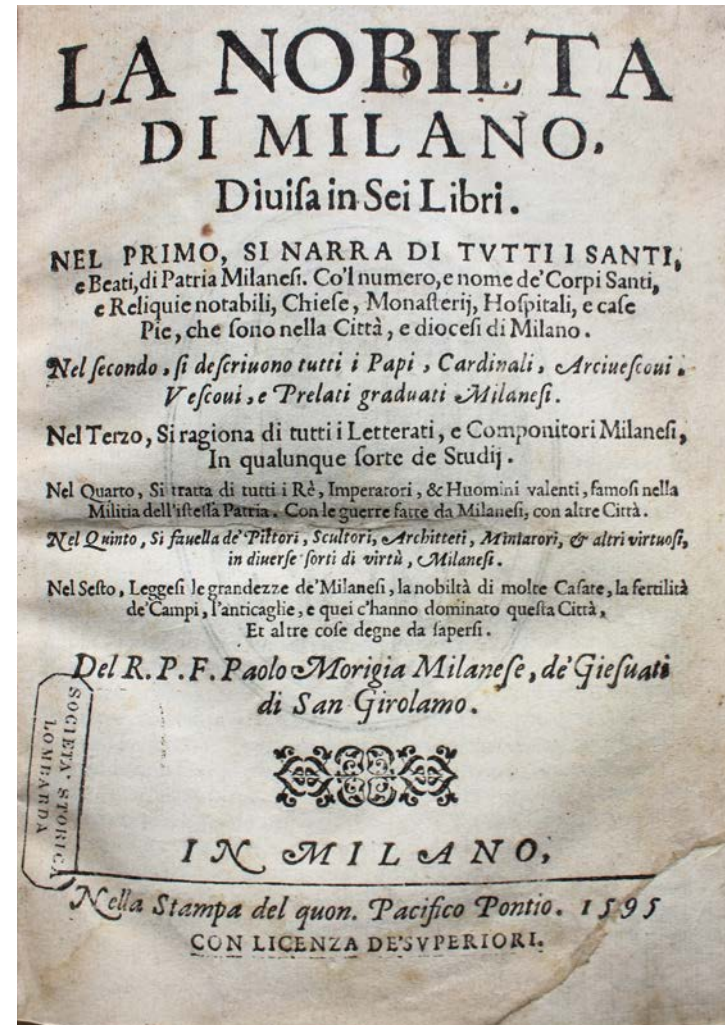 LA NOBILTA
DI MILANO.
Diuiſa in Sei Libri.
NEL PRIMO, SI NARRA DI TVTTI I SANTI,
e Beati, di Patria Milaneſi. Co'l numero, e nome de' Corpi Santi,
e Reliquie notabili, Chieſe, Monaſterij, Hoſpitali, e caſe
Pie, che ſono nella Città, e dioceſi di Milano.
Nel ſecondo, ſi deſcriuono tutti i Papi, Cardinali, Arciueſcoui.
Veſcoui, e Prelati graduati Milaneſi.
Nel Terzo, Si ragiona di tutti i Letterati, e Componitori Milaneſi,
In qualunque ſorte de Studij.
Nel Quarto, Si tratta di tutti i Rè, Imperatori, & Huomini valenti, famoſi nella
Militia dell'iſteſſa Patria. Con le guerre fatte da Milaneſi, con altre Città.
Nel Quinto, Si fauella de' Pittori, Scultori, Architteti, Miniatori, & altri virtuoſi,
in diuerſe ſorti di virtù, Milaneſi.
Nel Seſto, Leggeſi le grandezze de' Milaneſi, la nobiltà di molte Caſate, la fertilità
de' Campi, l'anticaglie, e quei c'hanno dominato queſta Città,
Et altre coſe degne da ſaperſi.
Del R. P. F. Paolo Morigia Milaneſe, de' Gieſuati
di San Girolamo.
SOCIETA' STORICA
LOMBARDA
IN MILANO,
Nella Stampa del quon. Pacifico Pontio. 1595
CON LICENZA DE' SVPERIORI.